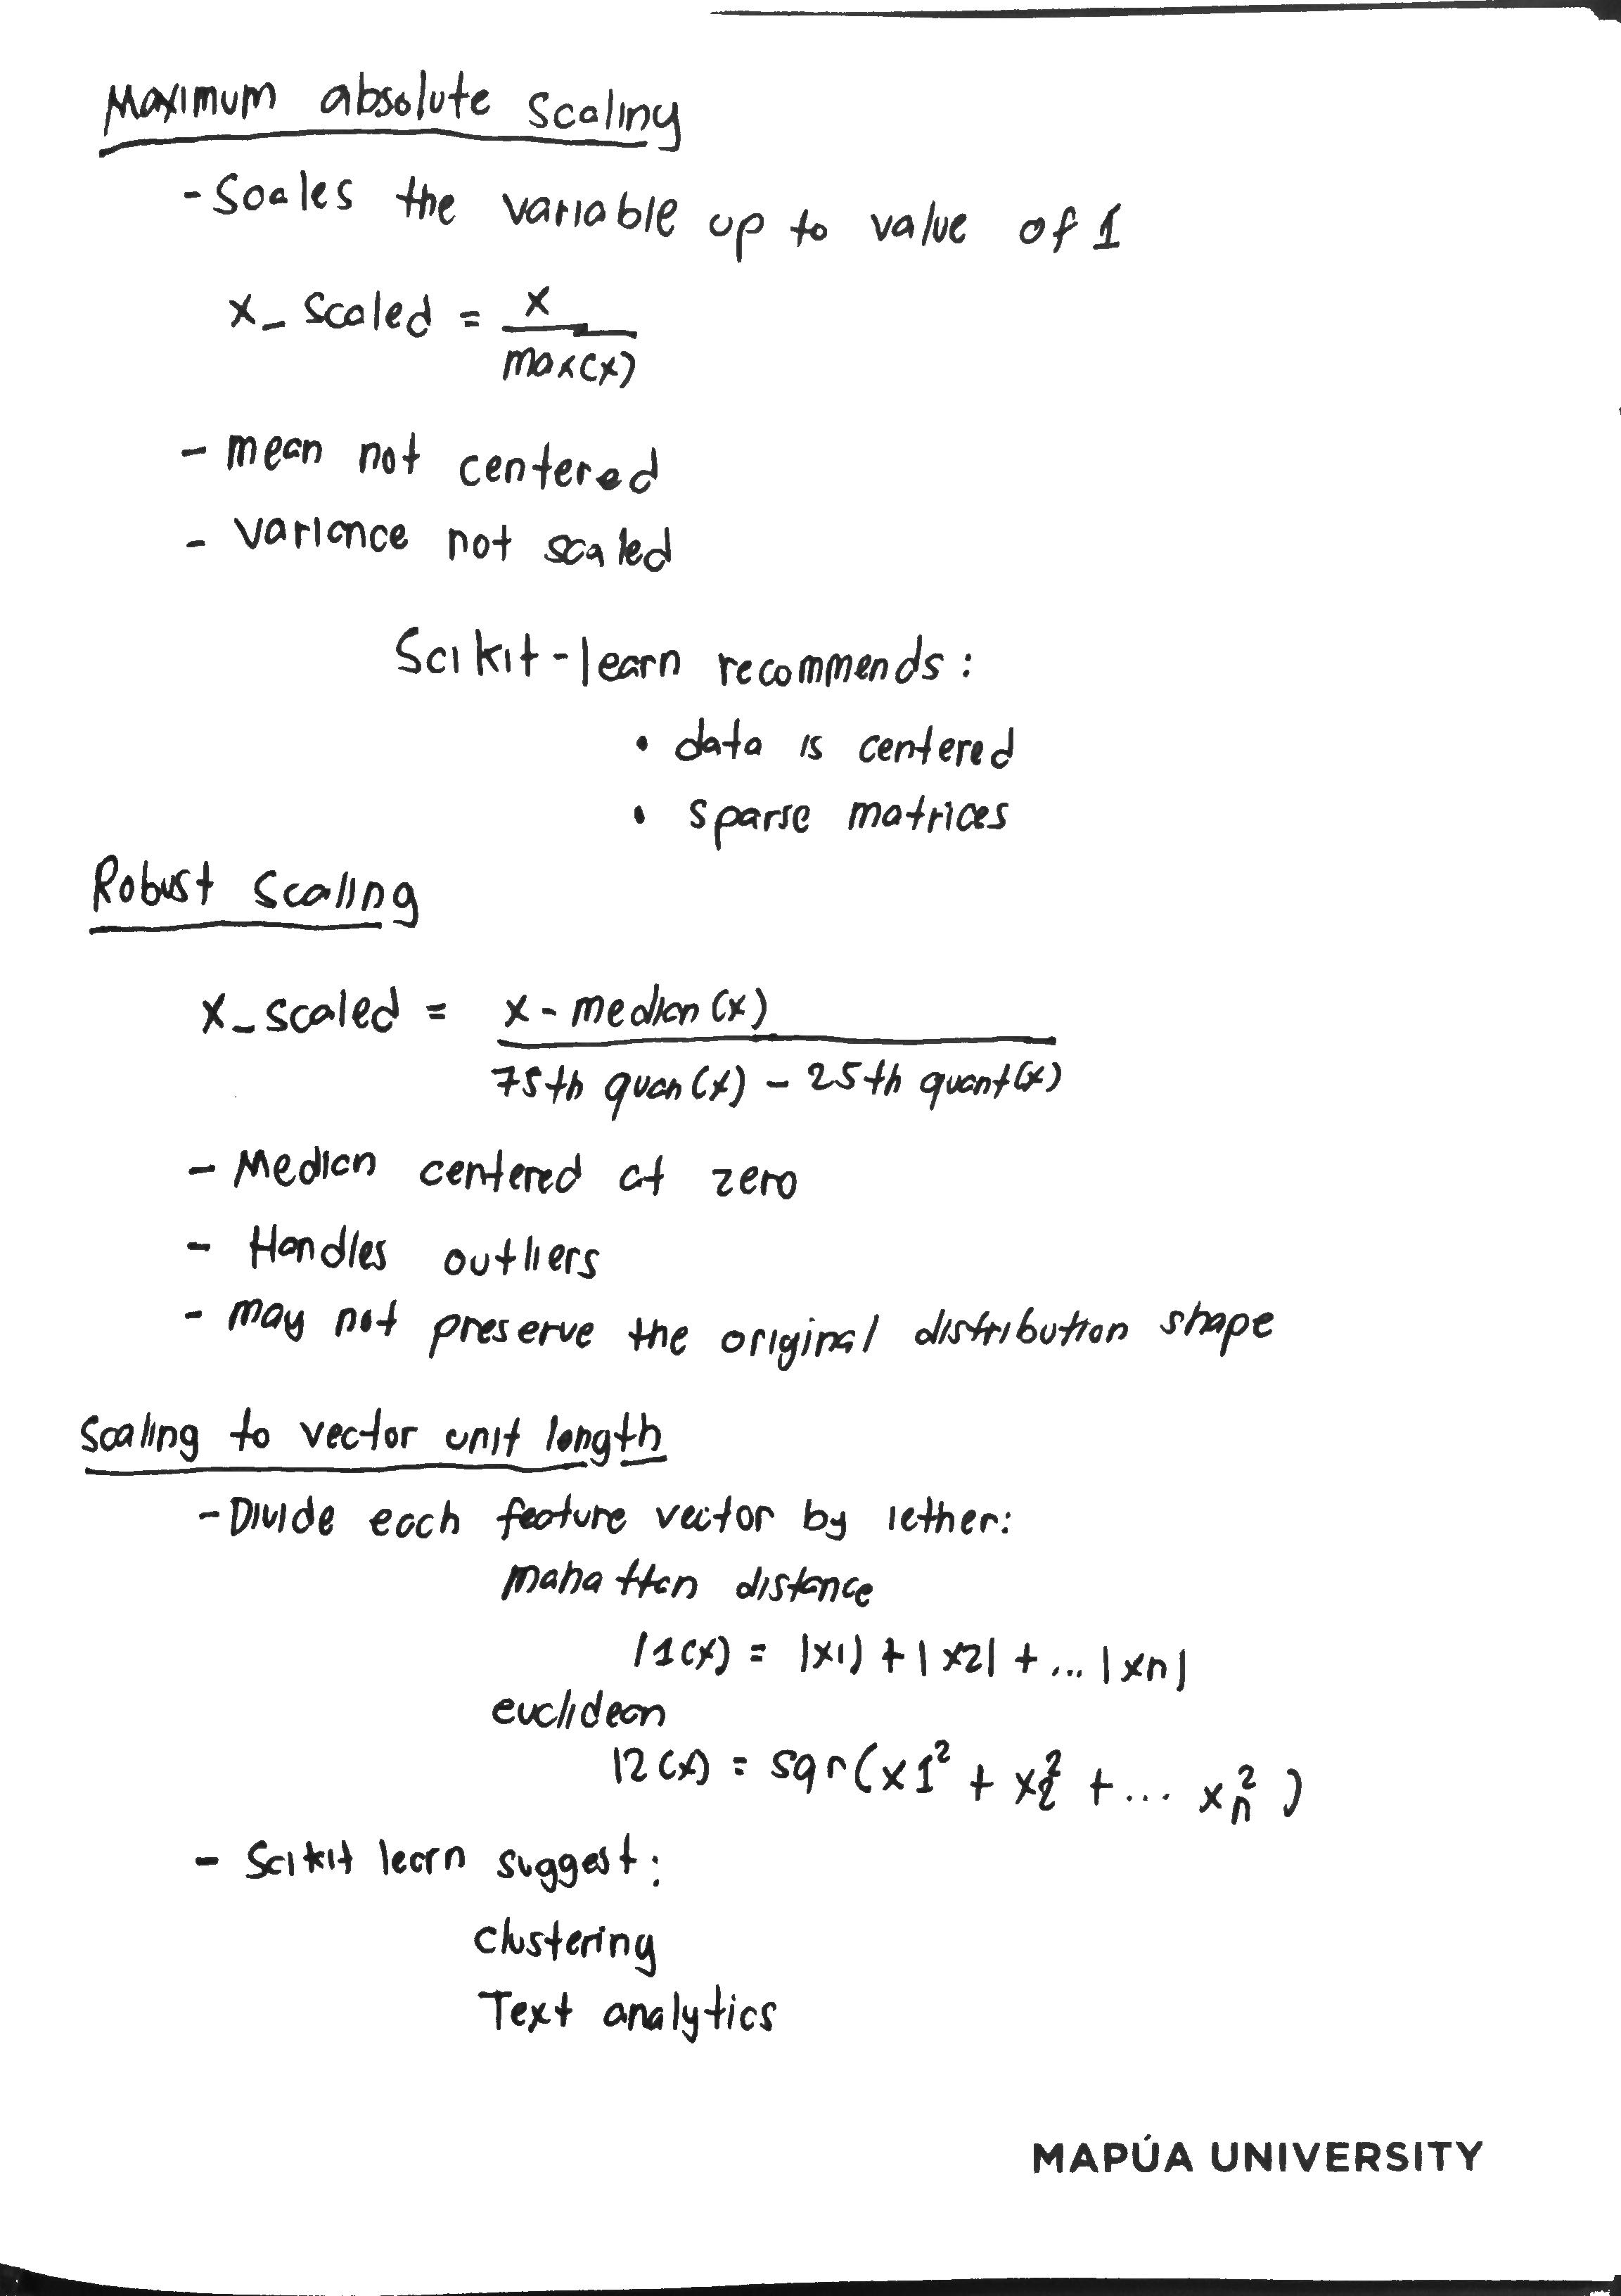 Maximum absolute scaling
- Scales the variable up to value of 1
x_scaled = x
max(x)
- mean not centered
- variance not scaled
Scikit-learn recommends:
• data is centered
• sparse matrices
Robust scaling
x_scaled = x - median(x)
75th quan(x) - 25th quant(x)
- Median centered at zero
- Handles outliers
- may not preserve the original distribution shape
Scaling to vector unit length
- Divide each feature vector by iether:
mahattan distance
l1(x) = |x1| + |x2| + ... |xn|
euclidean
l2(x) = sqr(x1² + x2² + ... xn²)
- Scikit learn suggest:
clustering
Text analytics
MAPÚA UNIVERSITY